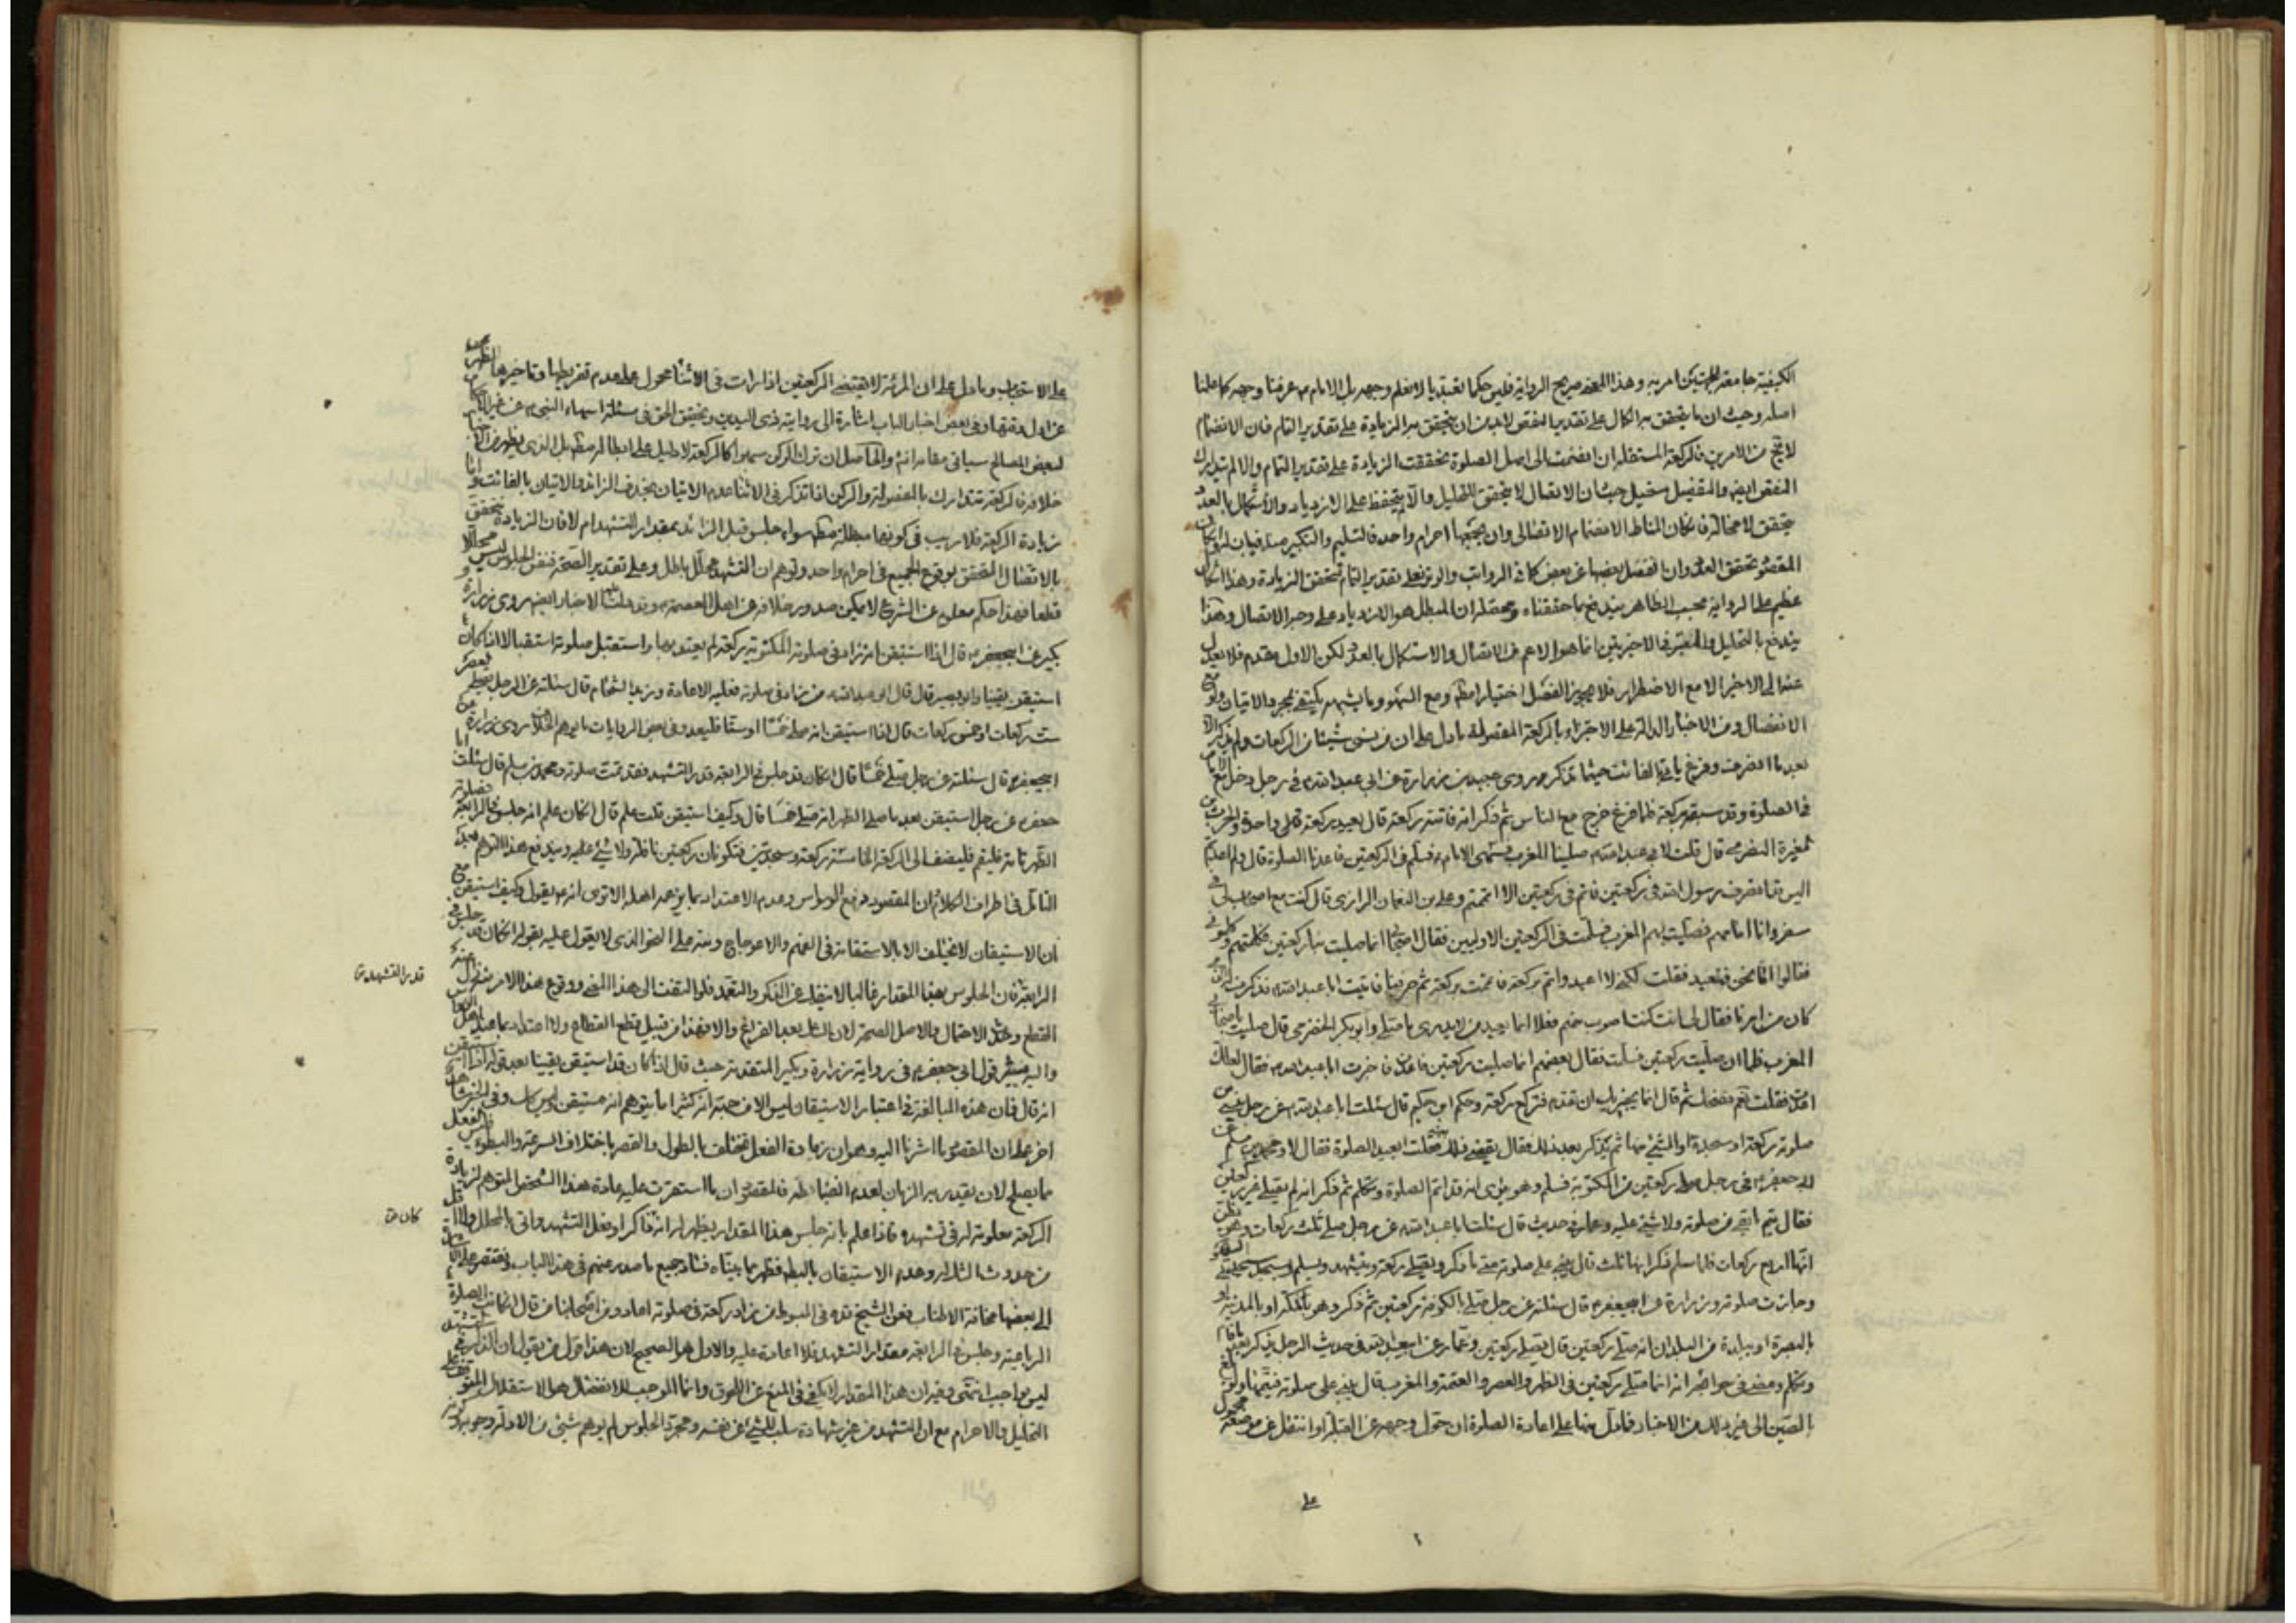 الكيفية جامعة للجهتين امر به وهذا المعنى صريح الرواية فليس حكما تعبديا لا نعلم وجهه بل الامام ع عرفنا وجهه كما علمنا
اصله وحيث ان ما يتحقق به الكمال على تقدير النقص لابد من ان يتحقق به الزيادة على تقدير التمام فان الانضمام
من الامرين فالركعة المستقلة ان انضمت الى اصل الصلوة تحققت الزيادة على تقدير التمام والا لم يتدارك
النقص ايضا والتفصيل مستحيل حيث ان الاتصال لا يتحقق للتحليل والا يتحفظ على الازدياد والاستكمال بالعدد
يتحقق لا محالة فان كان المناط الانضمام الاتصالى وان يجمعها احرام واحد فالتسليم والتكبير منافيان له وان كان
المقصود تحقق العدد وان انفصل بعضها عن بعض كما في الرواتب والوتر فعلى تقدير التمام تتحقق الزيادة وهذا اشكال
عظيم على الرواية بحسب الظاهر يندفع بما حققناه ومحصله ان المبطل هو الازدياد على وجه الاتصال وهذا
يندفع بالتحليل والمعتبر في الاخيرتين انما هو الاعم من الاتصال والاستكمال بالعدد لكن الاول مقدم فلا يعدل
عنه الى الاخير الا مع الاضطرار فلا يجوز الفصل اختيارا مطلقا ومع السهو وما يشبهه يكتفى بمجرد الاتيان ولو مع
الانفصال ومن الاخبار الدالة على الاجتزاء بالركعة المفصولة ما دل على ان من نسى شيئا من الركعات ولم يذكر الا
بعد ما انصرف وفرغ ياتى بالفائت حيثما تذكر روى عبيد بن زرارة عن ابى عبد الله ع في رجل دخل مع الامام
في الصلوة وقد سبقه بركعة فلما فرغ خرج مع الناس ثم ذكر انه فاتته ركعة قال يعيد ركعة واحدة والحرث بن
المغيرة النضرى قال قلت لابى عبد الله ع صلينا المغرب فسهى الامام فسلم في الركعتين فاعدنا الصلوة قال ولم اعدتم
اليس قد انصرف رسول الله في ركعتين فاتم في ركعتين الا اتممتم وعلى بن النعمان الرازى قال كنت مع اصحاب لى في
سفر وانا امامهم فصليت بهم المغرب فسلمت في الركعتين الاوليين فقال اصحابى انما صليت بنا ركعتين فكلمتهم وكلمونى
فقالوا اما نحن فنعيد فقلت لكنى لا اعيد واتم بركعة فاتممت بركعة ثم سرنا فاتيت ابا عبد الله ع فذكرت له الذى
كان من امرنا فقال لى انت كنت اصوب منهم فعلا انما يعيد من لا يدرى ما صلى وابو بكر الحضرمى قال صليت باصحابى
المغرب فلما ان صليت ركعتين سلمت فقال بعضهم انما صليت ركعتين فاعدت فاخبرت ابا عبد الله ع فقال لعلك
اعدت فقلت نعم فضحك ثم قال انما يجزيك ان تقوم فتركع ركعة وحكم بن حكيم قال سئلت ابا عبد الله ع عن رجل نسى من
صلوته ركعة او سجدة او الشئ منها ثم يذكر بعد ذلك فقال يقضى ذلك بعينه فقلت ايعيد الصلوة فقال لا ومحمد بن مسلم عن
ابى جعفر ع في رجل صلى ركعتين من المكتوبة فسلم وهو يرى انه قد اتم الصلوة وتكلم ثم ذكر انه لم يصل غير ركعتين
فقال يتم ما بقى من صلوته ولا شئ عليه وعمار في حديث قال سئلت ابا عبد الله ع عن رجل صلى ثلث ركعات وهو يظن
انها اربع ركعات فلما سلم ذكر انها ثلث قال يبنى على صلوته متى ما ذكر ويصلى ركعة ويتشهد ويسلم ويسجد سجدتى السهو
وجازت صلوته وزرارة عن ابى جعفر ع قال سئلته عن رجل صلى بالكوفة ركعتين ثم ذكر وهو بمكة او بالمدينة او
بالبصرة او ببلدة من البلدان انه صلى ركعتين قال يصلى ركعتين وعمار عن ابى عبد الله ع في حديث الرجل يذكر بعد ما قام
وتكلم ومضى في حوائجه انه انما صلى ركعتين في الظهر والعصر والعتمة والمغرب قال يبنى على صلوته فيتمها ولو بلغ
الصين الى غير ذلك من الاخبار فما دل منها على اعادة الصلوة ان حول وجهه عن القبلة او انتقل عن موضعه محمول
على
على الاستحباب وما دل على ان المرئة لا تقضى الركعتين اذا رات في الاثناء محمول على عدم تفريطها وتاخيرها الظهر
عن اول وقتها وفي بعض اخبار الباب اشارة الى رواية ذى اليدين وتحقيق الحق في مسئلة اسهاء النبى ص عن غير
لبعض المصالح سياتى مقامه انش والحاصل ان ترك الركن سهوا كالركعة لا دليل على ابطاله مطلقا بل الذى يظهر من الاخبار
خلافه فالركعة تتدارك بالمفصولة والركن اذا تذكر في الاثناء عدم الاتيان بحذف الزائد والاتيان بالفائت واما
زيادة الركعة فلا ريب في كونها مبطلة مطلقا سواء جلس قبل الزائد بمقدار التشهد ام لا فان الزيادة تتحقق
بالاتصال المحقق بوقوع الجميع في احرام واحد وتوهم ان التشهد محلل باطل وعلى تقدير الصحة فنفس الجلوس ليس محللا
قطعا فهذا حكم معلوم من الشرع لا يمكن صدور خلافه عن اهل العصمة ع وتدل عليه الاخبار ايضا روى زرارة و
بكير عن ابى جعفر ع قال اذا استيقن انه زاد في صلوته المكتوبة ركعة لم يعتد بها واستقبل صلوته استقبالا اذا كان
استيقن يقينا وابو بصير قال قال ابو عبد الله ع من زاد في صلوته فعليه الاعادة وزيد الشحام قال سئلته عن الرجل يصلى العصر
ست ركعات او خمس ركعات قال اذا استيقن انه صلى خمسا او ستا فليعد وفي بعض الروايات ما يوهم الخلاف روى زرارة عن
ابى جعفر ع قال سئلته عن رجل صلى خمسا قال ان كان قد جلس في الرابعة قدر التشهد فقد تمت صلوته ومحمد بن مسلم قال سئلت ابا
جعفر ع عن رجل استيقن بعد ما صلى الظهر انه صلى خمسا قال وكيف استيقن قلت علم قال ان كان علم انه جلس في الرابعة فصلوة
الظهر تامة فليقم فليضف الى الركعة الخامسة ركعة وسجدتين فتكونان ركعتين نافلة ولا شئ عليه ويندفع هذا التوهم بعد
التامل في اطراف الكلام فان المقصود دفع الوسواس وعدم الاعتداد بما يزعمه اهله الا ترى انه ع يقول وكيف استيقن مع
ان الاستيقان لا يختلف الا بالاستقامة في الفهم والاعوجاج ونبه على النحو الذى لا يعول عليه بقوله ان كان قد جلس في
الرابعة فان الجلوس بهذا المقدار غالبا لا ينفك عن الذكر والتعمد فلو التفت الى هذا المعنى ووقوع هذا الامر منه
القطع وحدث الاحتمال والاصل الصحة لان الشك بعد الفراغ والا فهذا من قبيل قطع القطاع ولا اعتداد بما
واليه يشير قول ابى جعفر ع في رواية زرارة وبكير المتقدمة حيث قال اذا كان قد استيقن يقينا بعد قوله اذا استيقن
انه قال فان هذه المبالغة في اعتبار الاستيقان ليس الا من جهة انه كثيرا ما يتوهم انه مستيقن وليس كذلك وفي الخبر شاهد
اخر على ان المقصود ما اشرنا اليه وهو ان زيادة الفعل تختلف بالطول والقصر باختلاف السرعة والبطوء
مما يصلح لان يقدر به الزمان لعدم انضباطه فالمقصود ان ما استمرت عليه عادة هذا الشخص المتوهم لزيادة
الركعة معلومة له في تشهده فاذا علم بانه جلس هذا المقدار يظهر له انه ذاكر او فعل التشهد واتى بالمحلل والا
من حدوث الشك له وعدم الاستيقان بالبطلان فظهر بما بيناه فساد جميع ما صدر عنهم في هذا الباب ونقتصر على
الى بعضها مخافة الاطناب فعن الشيخ قده في المبسوط من زاد ركعة في صلوته اعاد ومن اصحابنا من قال ان كانت الصلوة
الرباعية وجلس في الرابعة مقدار التشهد فلا اعادة عليه والاول هو الصحيح لان هذا قول من يقول بان الذكر في التشهد
ليس بواجب انتهى وفيه ان هذا المقدار لا يكفى في المنع عن اللحوق وانما الموجب للانفصال هو الاستقلال
التحليل والاحرام مع ان التشهد من غير شهادة سلب للشئ عن نفسه ومجرد الجلوس لم يوهم شئ من الادلة وجوبه
قدر التشهد
كان